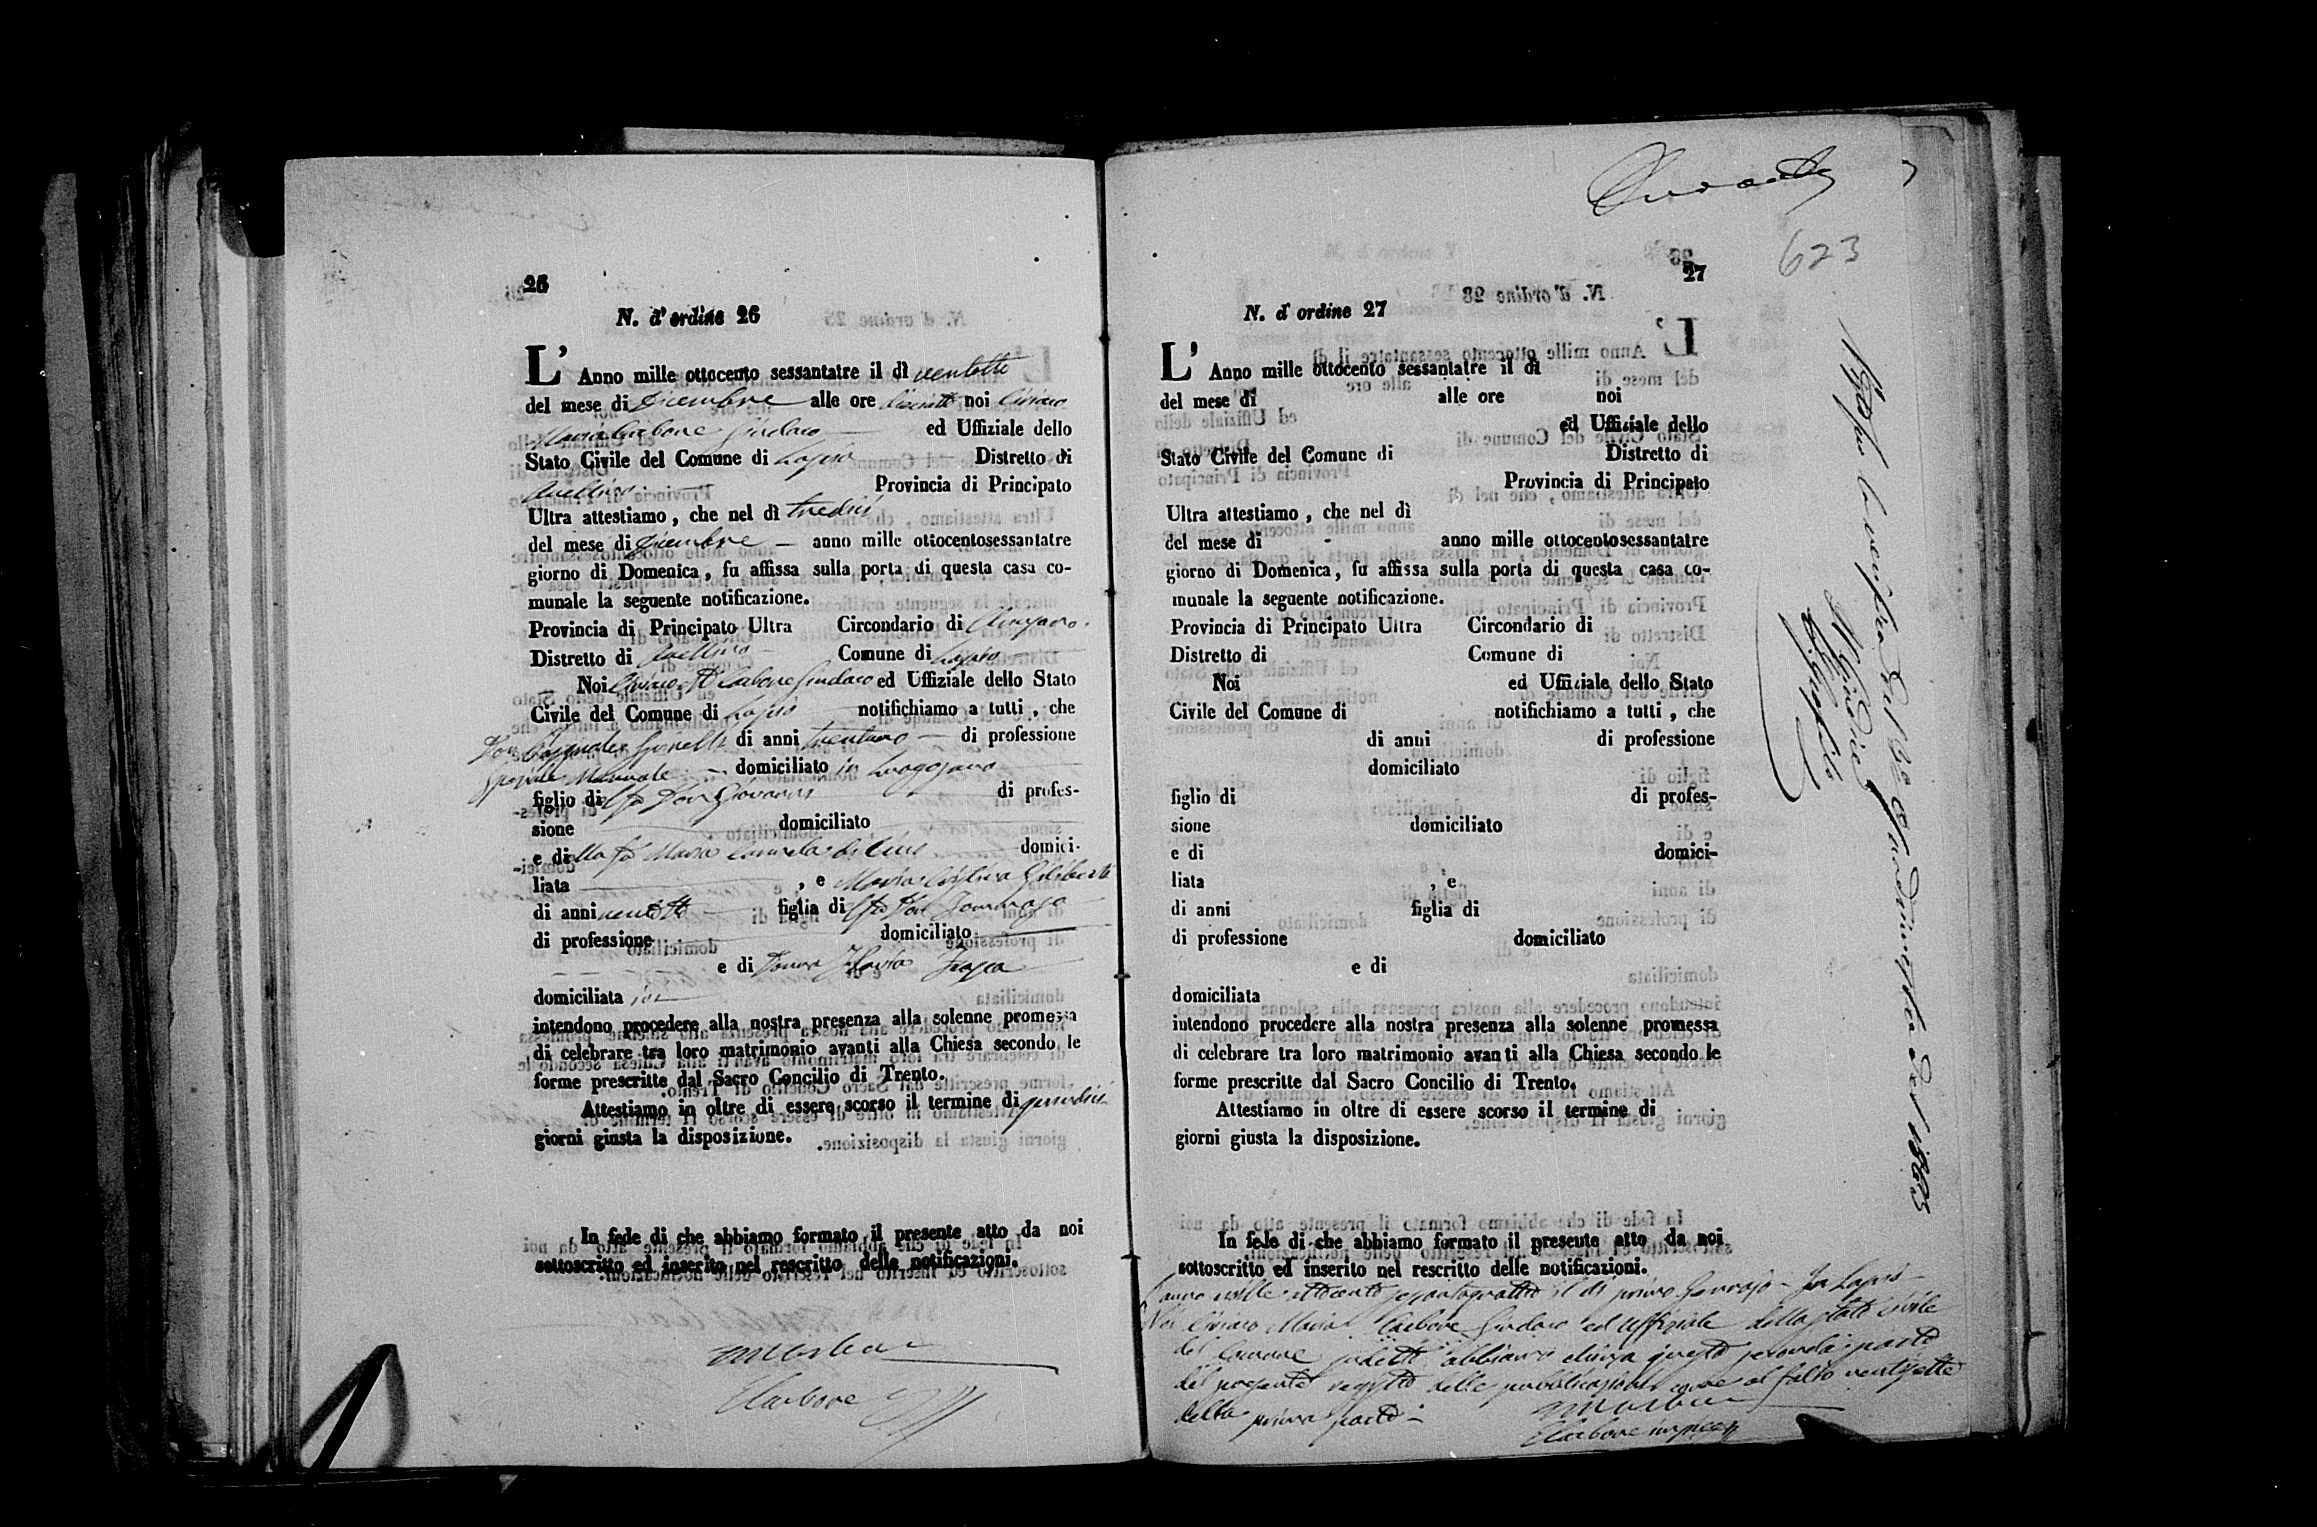 26
N. d'ordine 26
L'Anno mille ottocento sessantatre il dì ventotto
del mese di Dicembre alle ore noi Ciriaco
Maria Carbone Sindaco ed Uffiziale dello
Stato Civile del Comune di Lapio Distretto di
Avellino Provincia di Principato
Ultra attestiamo, che nel dì tredici
del mese di Dicembre anno mille ottocentosessantatre
giorno di Domenica, fu affissa sulla porta di questa casa co-
munale la seguente notificazione.
Provincia di Principato Ultra Circondario di
Distretto di Avellino Comune di Lapio
Noi Ciriaco Ma Carbone Sindaco ed Uffiziale dello Stato
Civile del Comune di Lapio notifichiamo a tutti, che
Don di anni trentuno di professione
domiciliato in Luogosano
figlio di Don Giovanni di profes-
sione domiciliato
e della fu Maria domici-
liata , e Maria Giliberti
di anni ventotto figlia di Don Tommaso
di professione domiciliato
e di Donna
domiciliata in
intendono procedere alla nostra presenza alla solenne promessa
di celebrare tra loro matrimonio avanti alla Chiesa secondo le
forme prescritte dal Sacro Concilio di Trento.
Attestiamo in oltre di essere scorso il termine di quindici
giorni giusta la disposizione.
In fede di che abbiamo formato il presente atto da noi
sottoscritto ed inserito nel rescritto delle notificazioni.
Carbone
623
27
N. d'ordine 27
L'Anno mille ottocento sessantatre il dì
del mese di alle ore noi
ed Uffiziale dello
Stato Civile del Comune di Distretto di
Provincia di Principato
Ultra attestiamo, che nel dì
del mese di anno mille ottocentosessantatre
giorno di Domenica, fu affissa sulla porta di questa casa co-
munale la seguente notificazione.
Provincia di Principato Ultra Circondario di
Distretto di Comune di
Noi ed Uffiziale dello Stato
Civile del Comune di notifichiamo a tutti, che
di anni di professione
domiciliato
figlio di di profes-
sione domiciliato
e di domici-
liata , e
di anni figlia di
di professione domiciliato
e di
domiciliata
intendono procedere alla nostra presenza alla solenne promessa
di celebrare tra loro matrimonio avanti alla Chiesa secondo le
forme prescritte dal Sacro Concilio di Trento.
Attestiamo in oltre di essere scorso il termine di
giorni giusta la disposizione.
In fede di che abbiamo formato il presente atto da noi
sottoscritto ed inserito nel rescritto delle notificazioni.
L'anno mille ottocento sessantaquattro il dì primo Gennajo In Lapio
Noi Ciriaco Maria Carbone Sindaco ed Uffiziale dello Stato Civile
del Comune abbiamo chiuso questa seconda parte
del presente registro delle pubblicazioni al folio ventisette
della prima parte
Carbone
del 1863
Il Giudice